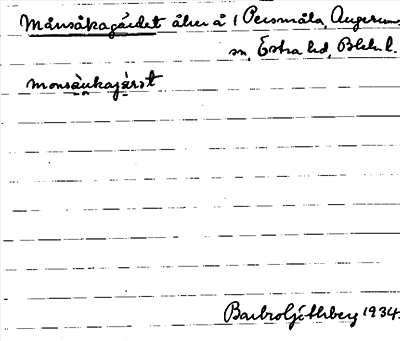 Månsåkagärdet åker å 1 Persmåla, Augerums
sn, Östra hd, Blek. l.
monsåukajærst
Barbro Götlberg 1934.